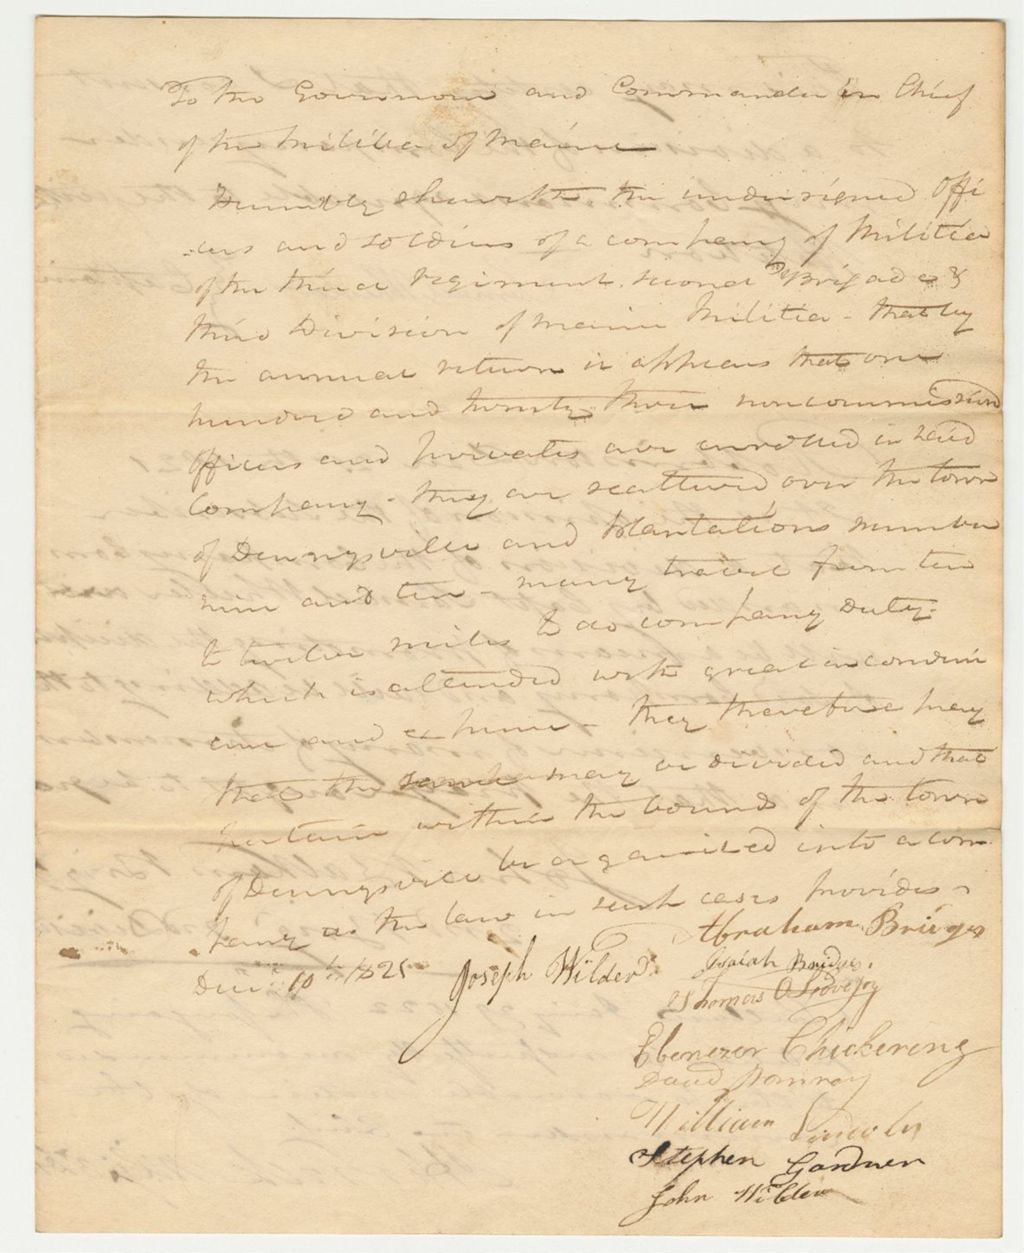 To the Governour and Commander in Chief
of the Militia of Maine
Humbly sheweth the undersigned Offi
cers and soldiers of a company of Militia
of the third regiment second Brigade &
third Division of Maine Militia - that by
the annual return it appears that one
hundred and twenty three noncommissiond
officers and privates are enrolled in said
Company - they are scattered over the town
of Dennysville and Plantations number
nine and ten - many travel from ten
to twelve miles to do company duty -
which is attended with great inconveni
ence and expense - they therefore pray
that the same may be divided and that
part within the bounds of the town
of Dennysville be organized into a com
pany as the law in such cases provides -
Decr 10th 1821 Joseph Wilder
Abraham Bridges
Isaiah Bridges
Thomas O Lovejoy
Ebenezer Chickering
David Pomroy
William Lincoln
Stephen Gardner
John Wilder